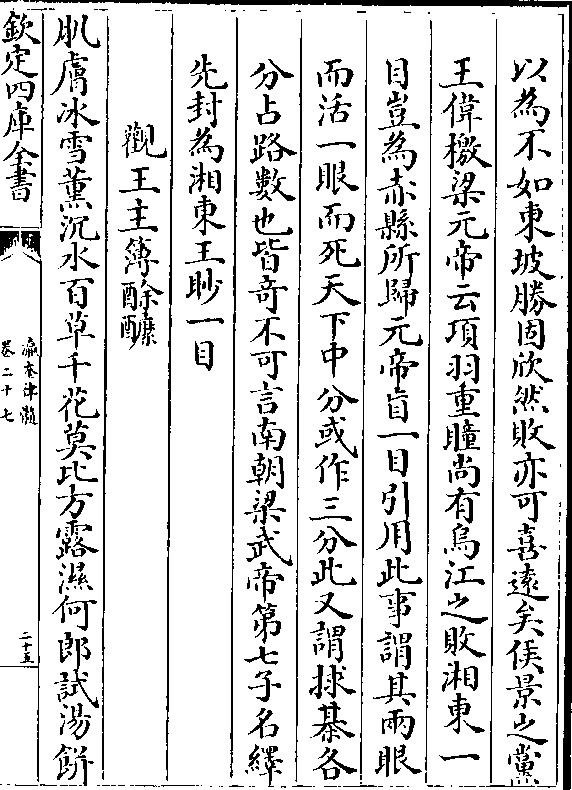 以為不如東坡勝固欣然敗亦可喜遠矣侯景之黨
王偉檄梁元帝云項羽重瞳尚有烏江之敗湘東一
目豈為赤縣所歸元帝盲一目引用此事謂其兩眼
而活一眼而死天下中分或作三分此又謂救棊各
分占路數也皆奇不可言南朝梁武帝第七子名繹
先封為湘東王眇一目
觀王主簿酴醿
肌膚冰雪薰沉水百草千花莫比方露濕何郎試湯餅
欽定四庫全書
瀛奎律髓
卷二十七
二十五